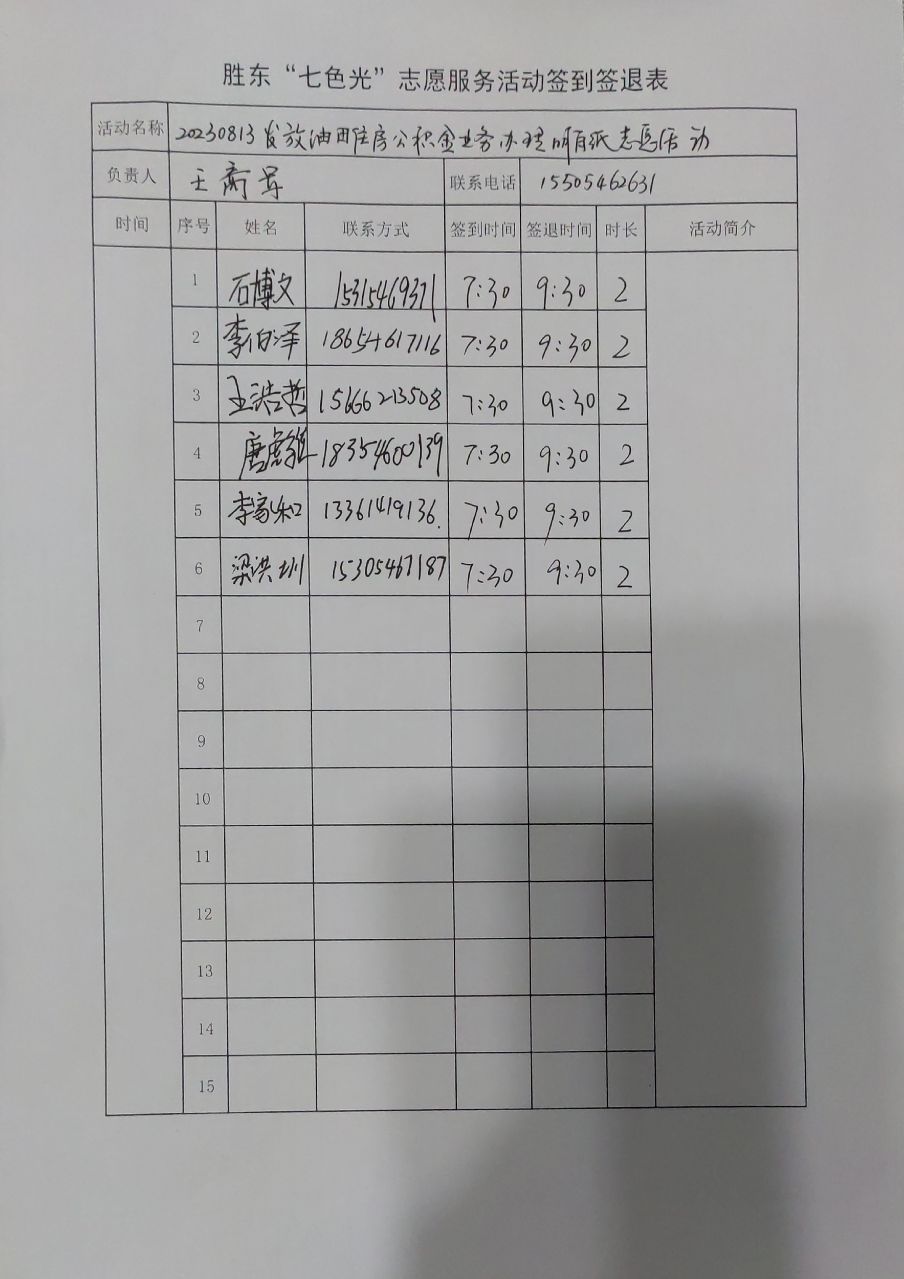 胜东“七色光”志愿服务活动签到签退表
活动名称 20230813发放油田住房公积金业务办理明白纸志愿活动
负责人 王 联系电话 15505462631
时间 序号 姓名 联系方式 签到时间 签退时间 时长 活动简介
1 石博文 15315469371 7:30 9:30 2
2 李伯泽 18654617116 7:30 9:30 2
3 王浩哲 15666213508 7:30 9:30 2
4 唐 18354600139 7:30 9:30 2
5 李家和 13361419136. 7:30 9:30 2
6 梁洪圳 15305467187 7:30 9:30 2
7
8
9
10
11
12
13
14
15